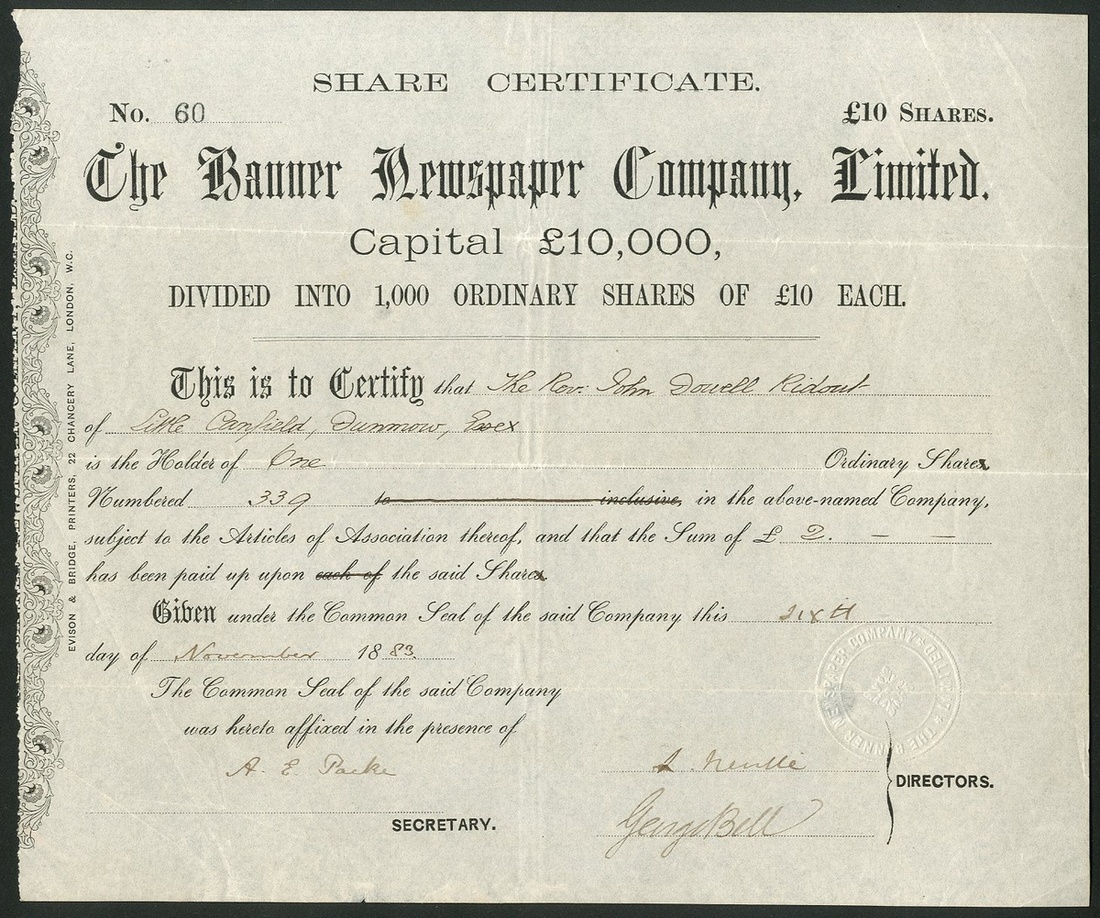 SHARE CERTIFICATE.
No. 60
£10 SHARES.
The Banner Newspaper Company, Limited.
Capital £10,000,
DIVIDED INTO 1,000 ORDINARY SHARES OF £10 EACH.
This is to Certify that The Rev. John Dowell Ridout
of Little Canfield, Dunmow, Essex
is the Holder of One Ordinary Shares
Numbered 339 to inclusive, in the above-named Company,
subject to the Articles of Association thereof, and that the Sum of £ 2. — —
has been paid up upon each of the said Shares
Given under the Common Seal of the said Company this sixth
day of November 1883.
The Common Seal of the said Company
was hereto affixed in the presence of
A. E. Packe
SECRETARY.
Neville
George Bell
DIRECTORS.
THE BANNER NEWSPAPER COMPANY LIMITED
EVISON & BRIDGE, PRINTERS, 22 CHANCERY LANE, LONDON, W.C.